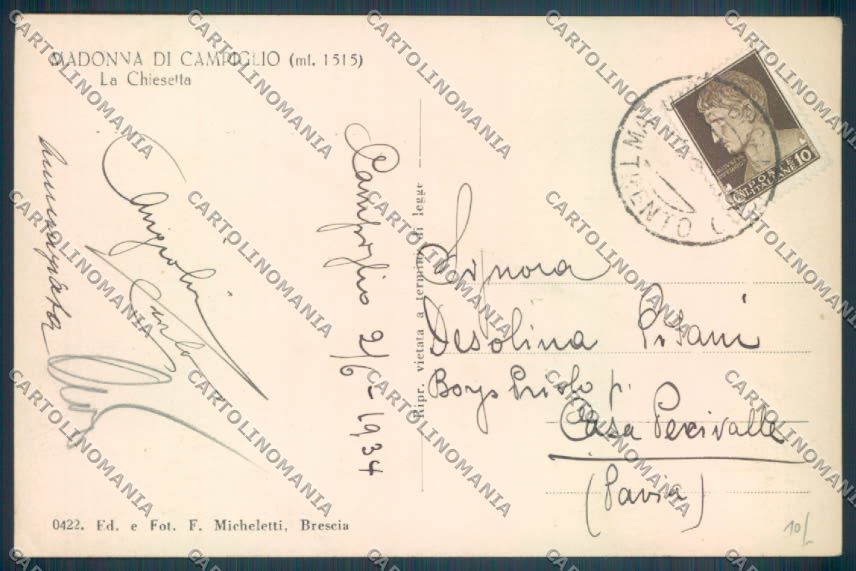 MADONNA DI CAMPIGLIO (mt. 1515)
La Chiesetta
Campiglio 2/6-1934
Carlo
Ripr. vietata a termini di legge
POSTE ITALIANE 10
TRENTO
Signora
Desolina Pisani
Borgo Priolo p.
Casa Percivalle
(Pavia)
0422. Ed. e Fot. F. Micheletti, Brescia
10/-
CARTOLINOMANIA